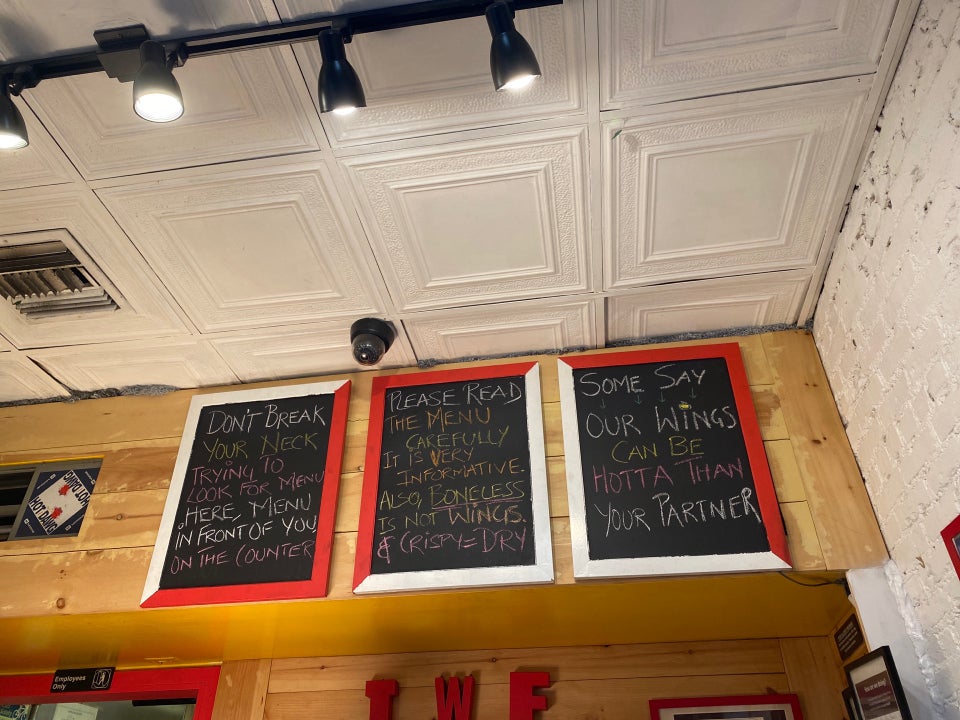 DON'T BREAK
YOUR NECK
TRYING TO
LOOK FOR MENU
HERE, MENU
IN FRONT OF YOU
ON THE COUNTER
PLEASE READ
THE MENU
CAREFULLY
IT IS VERY
INFORMATIVE.
ALSO, BONELESS
IS NOT WINGS.
& CRISPY = DRY
SOME SAY
OUR WINGS
CAN BE
HOTTA THAN
YOUR PARTNER
Employees
Only
IWF